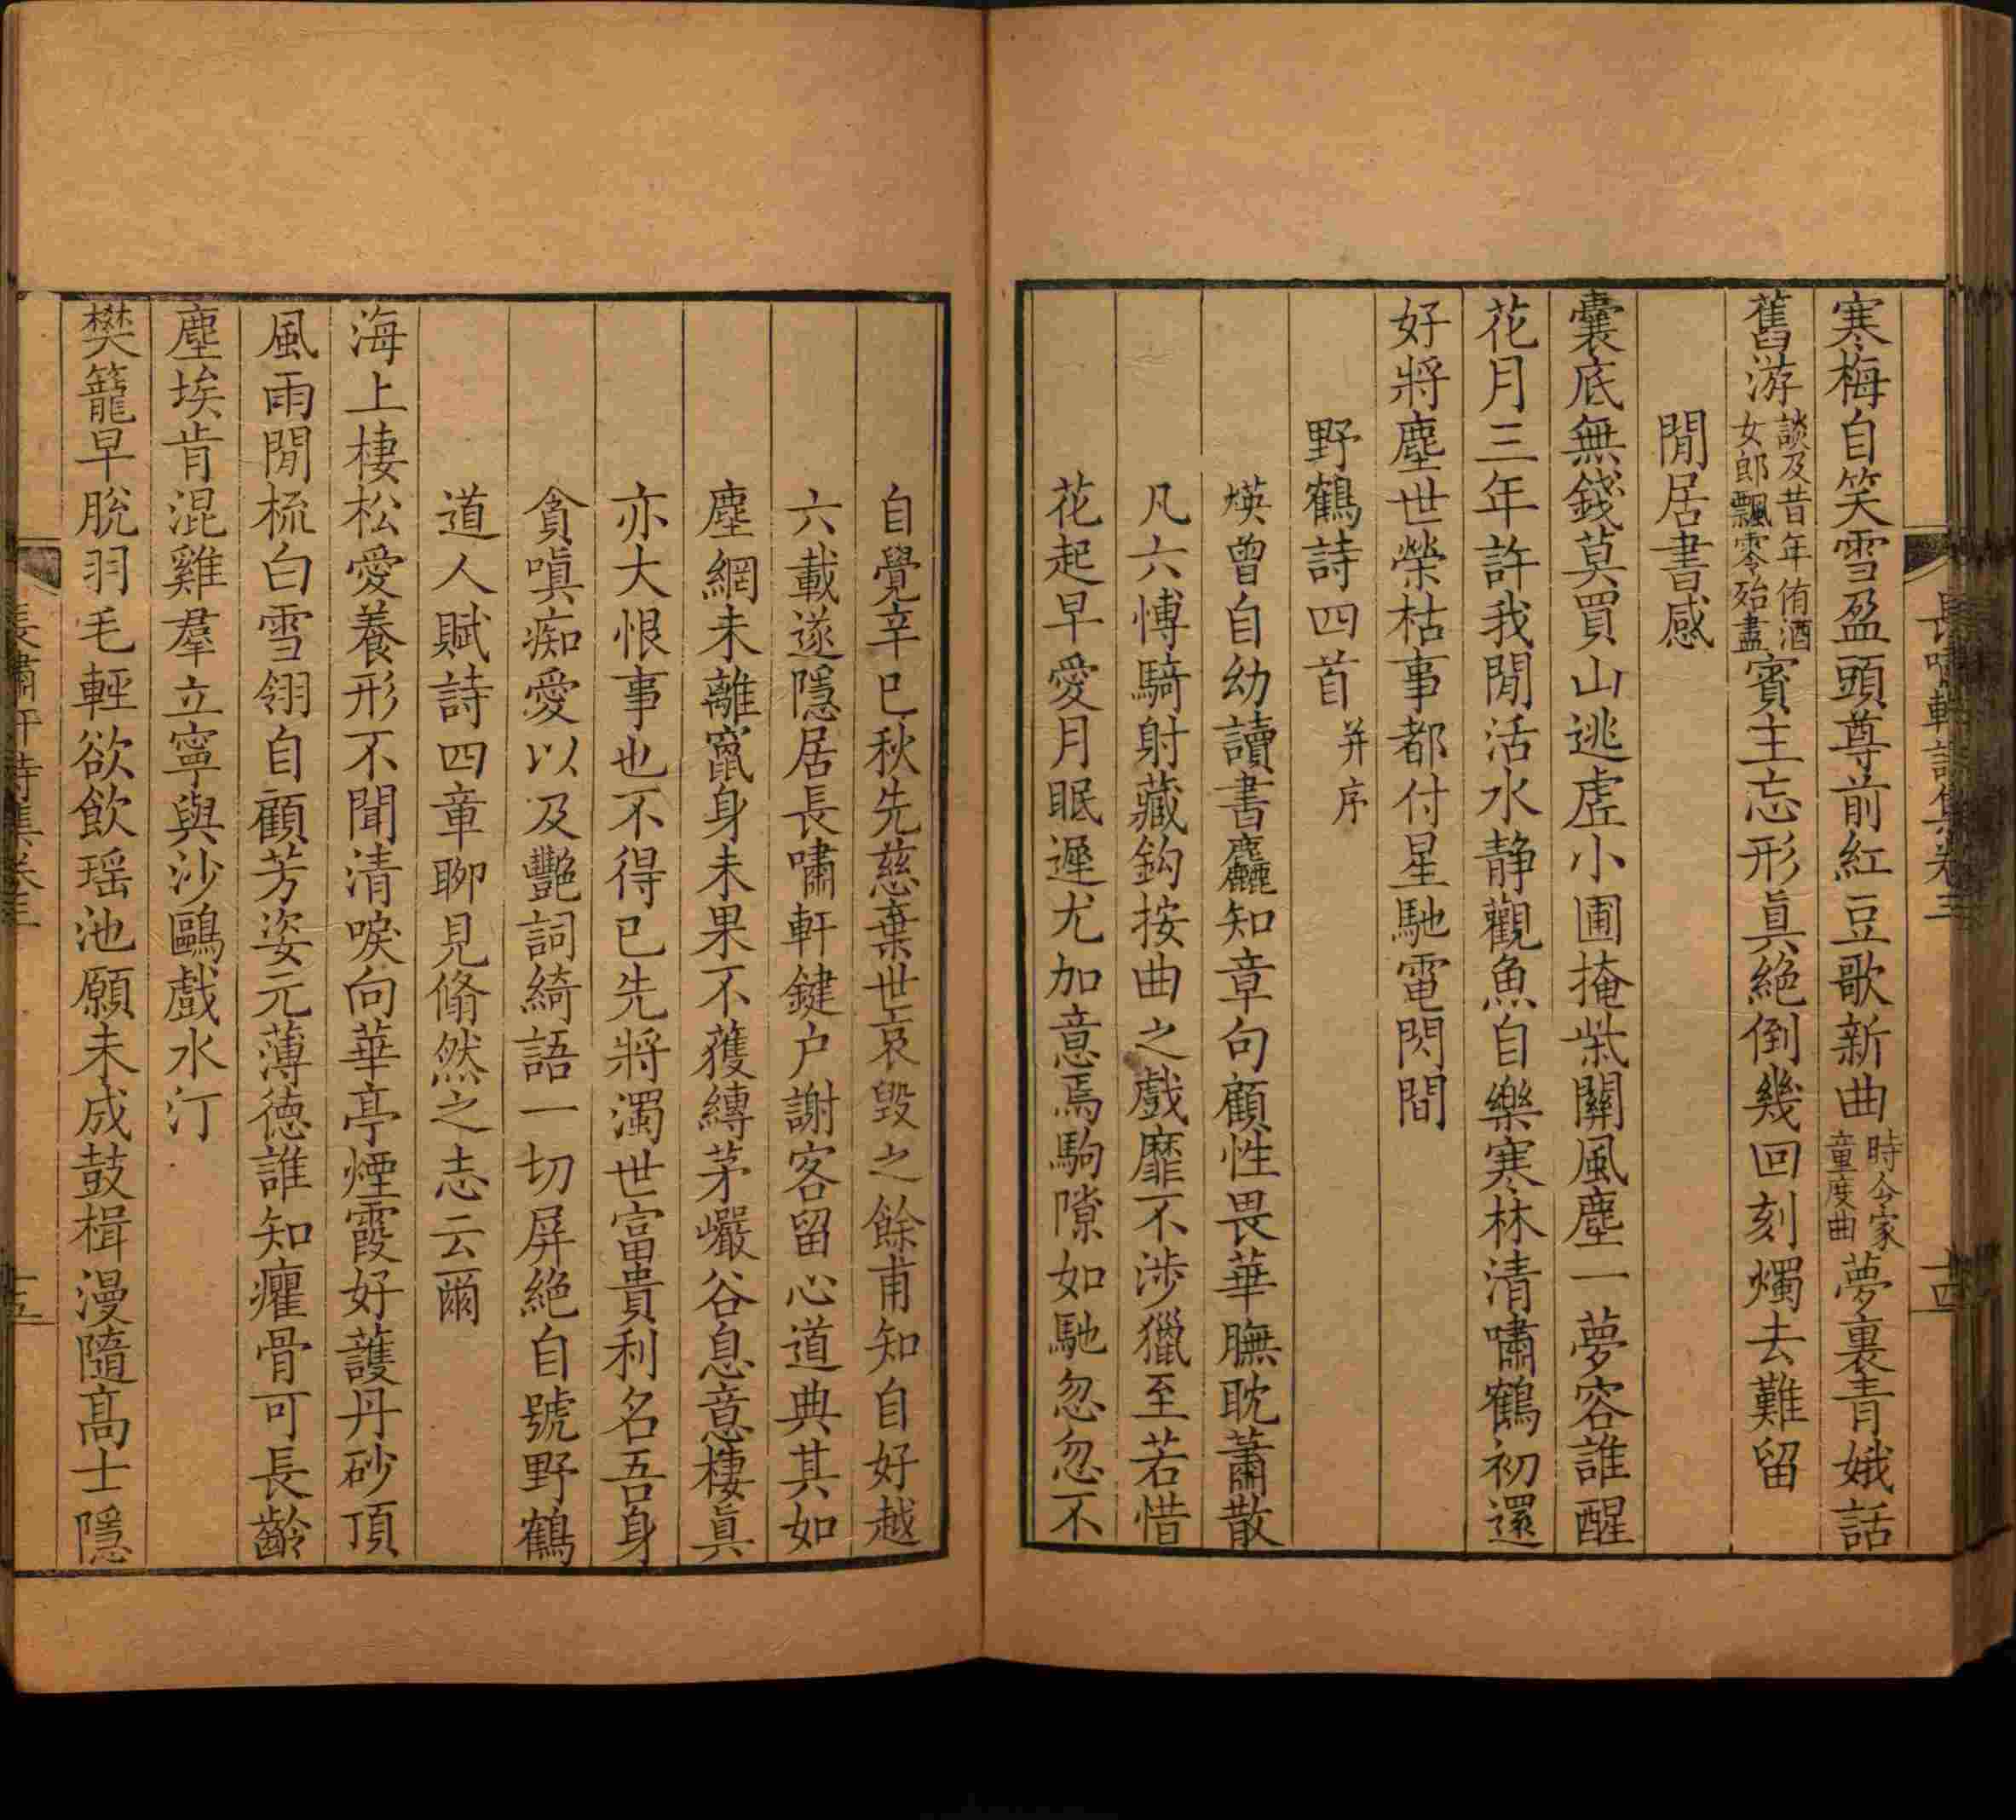 長嘯軒詩集卷三
十四
寒梅自笑雪盈頭尊前紅豆歌新曲時令家童度曲夢裏青娥話
舊游談及昔年侑酒女郎飄零殆盡賓主忘形眞絕倒幾回刻燭去難留
閒居書感
囊底無錢莫買山逃虛小圃掩柴關風塵一夢容誰醒
花月三年許我閒活水静觀魚自樂寒林清嘯鶴初還
好將塵世榮枯事都付星馳電閃間
野鶴詩四首并序
煐曾自幼讀書麤知章句顧性畏華膴耽蕭散
凡六博騎射藏鈎按曲之戲靡不涉獵至若惜
花起早愛月眠遲尤加意焉駒隙如馳忽忽不
自覺辛巳秋先慈棄世哀毀之餘甫知自好越
六載遂隱居長嘯軒鍵户謝客留心道典其如
塵網未離竄身未果不獲縛茅巖谷息意棲眞
亦大恨事也不得已先將濁世富貴利名吾身
貪嗔痴愛以及艷詞綺語一切屏絶自號野鶴
道人賦詩四章聊見翛然之志云爾
海上棲松愛養形不聞清唳向華亭煙霞好護丹砂頂
風雨閒梳白雪翎自顧芳姿元薄德誰知癯骨可長齡
塵埃肯混雞羣立寧與沙鷗戲水汀
樊籠早脫羽毛輕欲飲瑶池願未成鼓楫漫隨高士隱
長嘯軒詩集卷三
十五